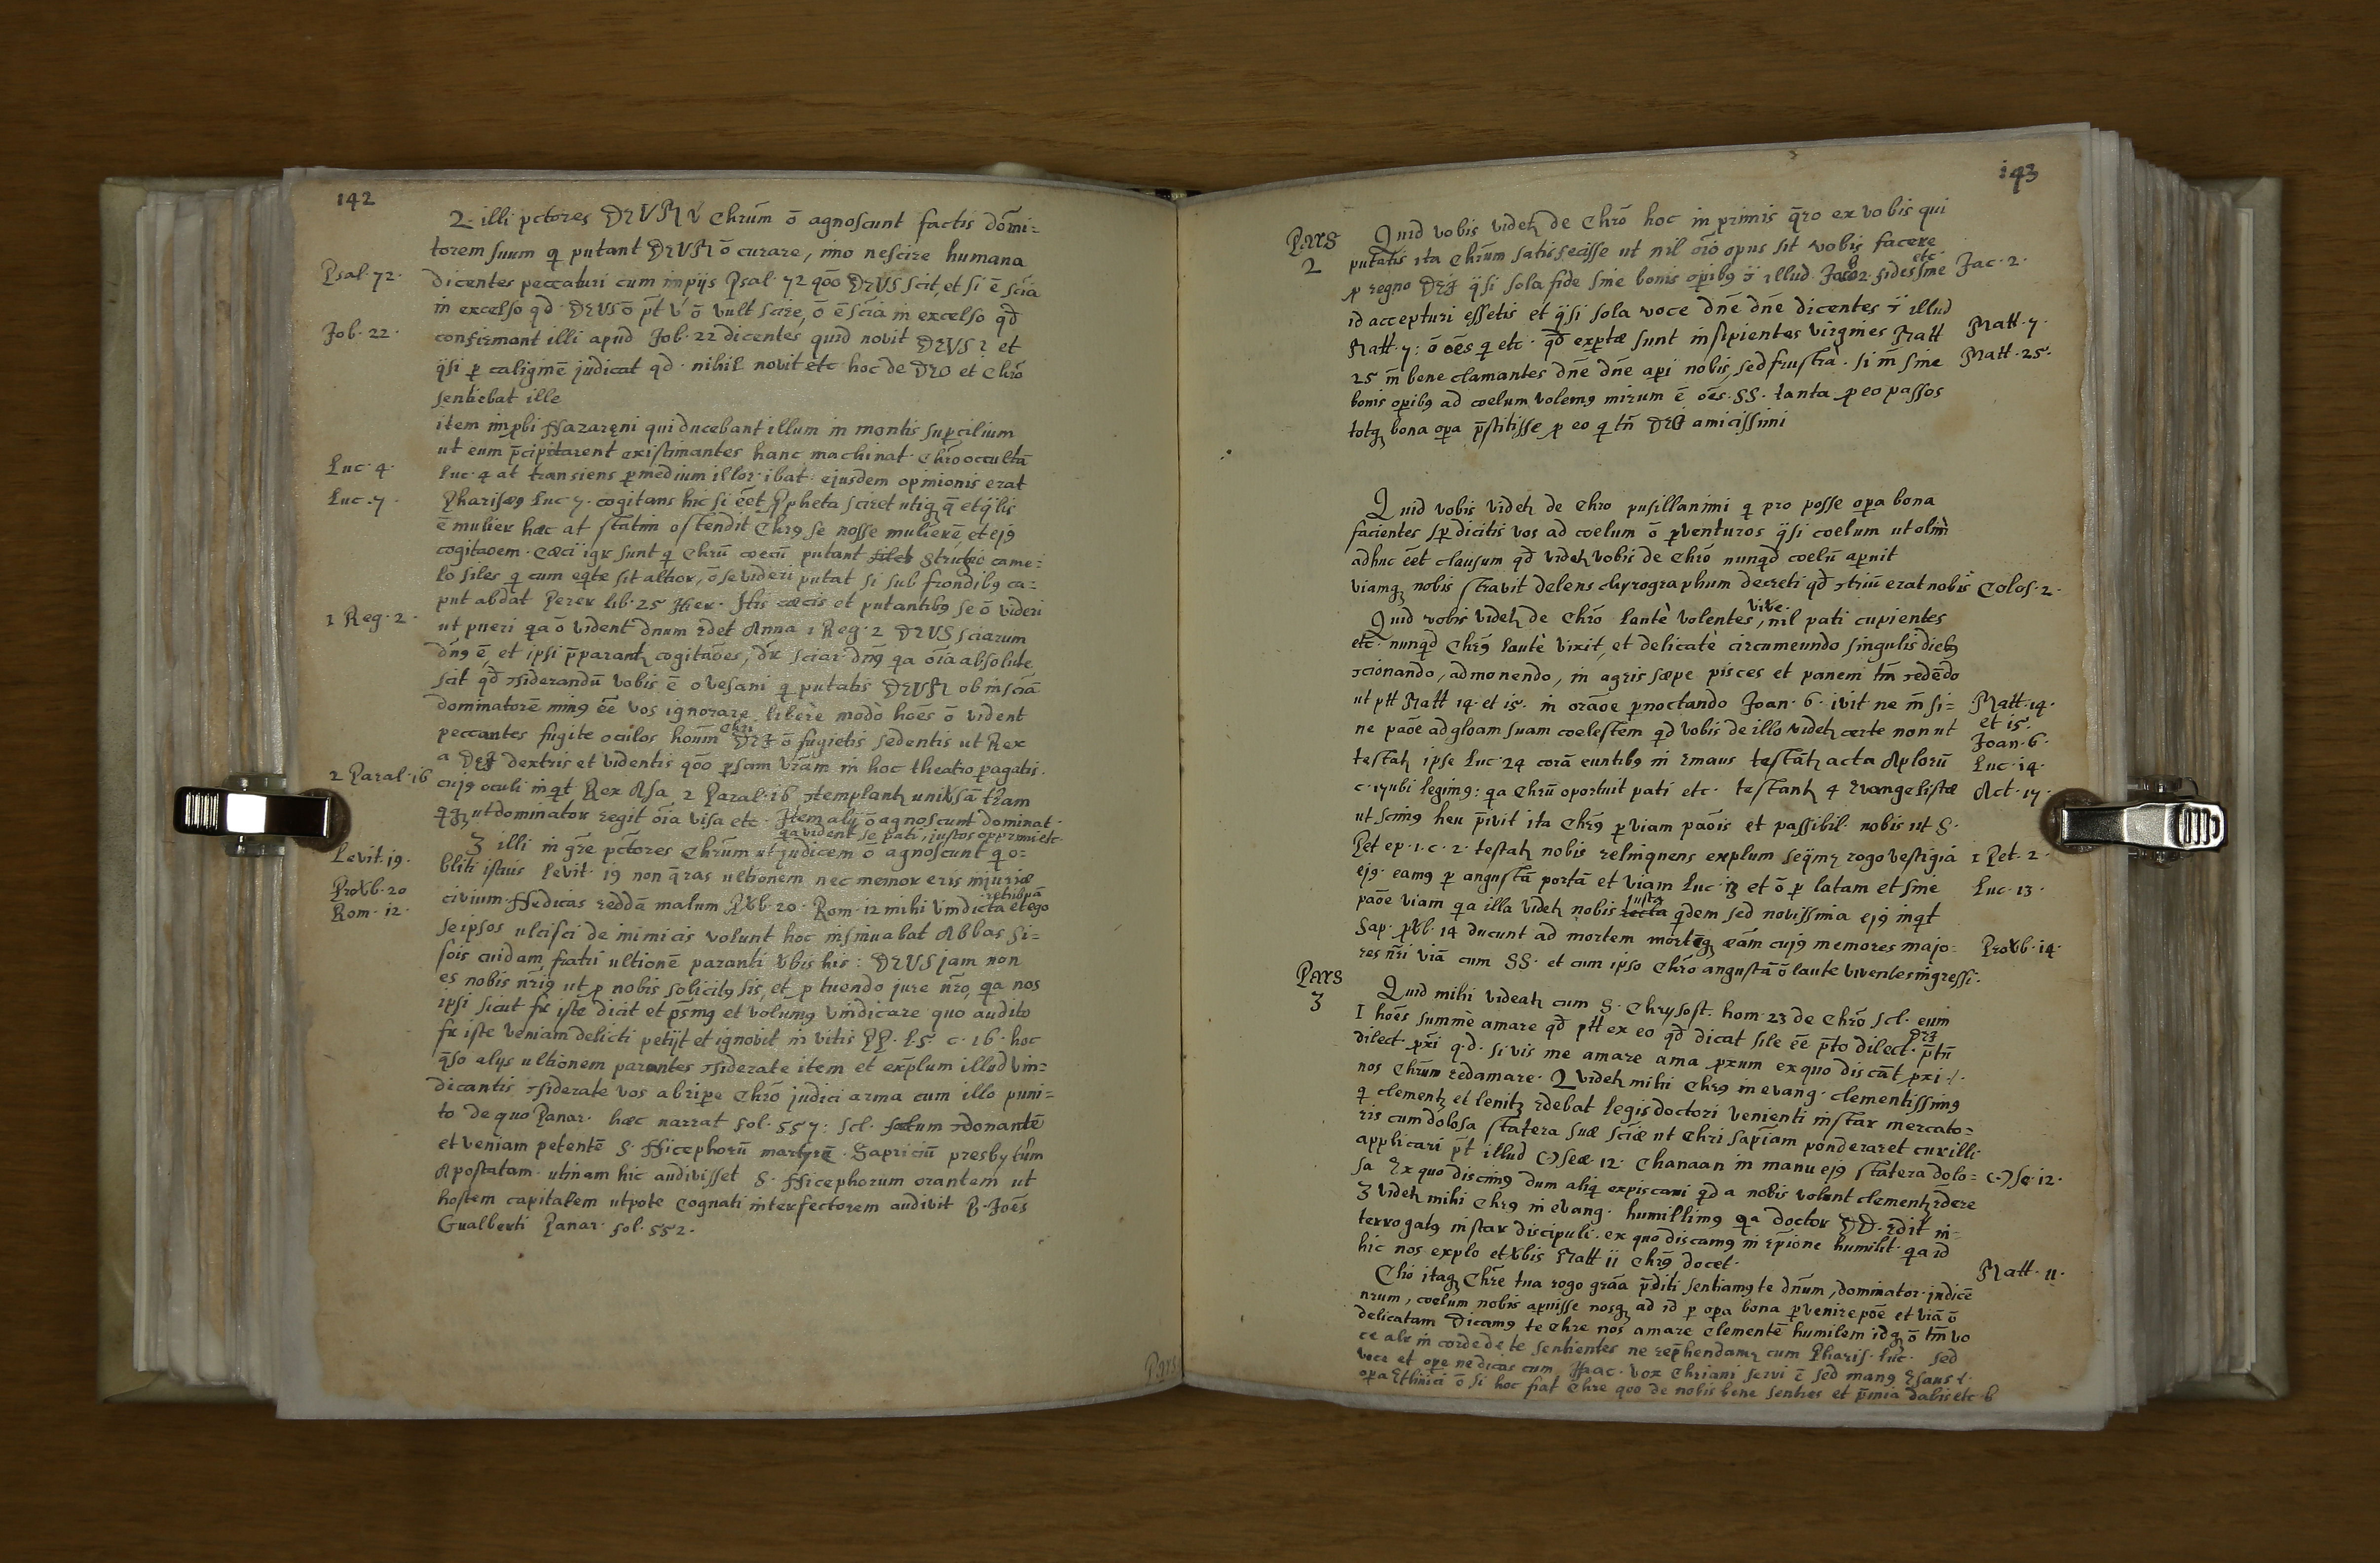 142
2. illi pctores DEUM V Chrūm ō agnoscunt factis dōmi=
torem suum q putant DEUM ō curare, imo nescire humana
Psal. 72.
dicentes peccaturi cum impijs Psal. 72 qōo DEUS scit, et si ē scīa
in excelso qd. DEUS ō pt V ō vult scire, ō ē scīa in excelso qd
Job. 22.
confirmant illi apud Job. 22 dicentes quid novit DEUS? et
q̈si p caliginē judicat qd. nihil novit etc. hoc de DEO et Chrō
sentiebat ille
item impbi Nazaręni qui ducebant illum in montis supcilium
ut eum p̄cipitarent existimantes hanc machinat. Chrō occultā
Luc. 4.
Luc. 4 at transiens p medium illor. ibat. ejusdem opinionis erat
Luc. 7.
Pharisæ9 Luc 7. cogitans hic si ēet Ppheta sciret utiq q̄ et q̈lis
ē mulier hæc at statim ostendit Chr9 se nosse mulierē, et ej9
cogitaoem. Cæci igr sunt q Chrū coecū putant siles Struthio came=
lo siles q cum eqte sit altior, ō se videri putat si sub frondib9 ca=
put abdat Perer lib. 25 Hier. His cæcis et putantib9 se ō videri
1 Reg. 2.
ut pueri qa ō vident dnum Edet Anna 1 Reg. 2 DEUS sciarum
dn̄9 ē, et ipsi p̄parant cogitāoes, dr sciar. dn̄9 qa oīa absolute
scit qd ɔsiderandū vobis ē o vesani q putatis DEUM ob inscīā
dominatorē min9 ēe vos ignorare, libere modò hoēs ō vident
peccantes fugite oculos hoūm Chri DEI ō fugietis sedentis ut Rex
a DEI dextris et videntis qōo psam vīam in hoc theatro pagatis.
2 Paral. 16
cuj9 oculi inqt Rex Asa 2 Paral. 16 ɔtemplant univsā trām
qq ut dominator regit oīa visa etc. Item alij ō agnoscunt dominat.
qa vident se pati, justos opprimi etc.
3 illi in gr̄e pctores Chrūm ut judicem ō agnoscunt q o=
Levit. 19.
bliti istius Levit. 19 non q̄ras ultionem nec memor eris injuriæ
Provb. 20
civium. Ne dicas reddā malum Pvb. 20. Rom. 12 mihi vindicta et ego retribuā
Rom. 12.
seipsos ulcisci de inimicis volunt hoc insinuabat Abbas Si=
sois cuidam fratri ultionē paranti vbis his: DEUS jam non
es nobis nr̄i9 ut p nobis solicit9 sis, et p tuendo jure nr̄o, qa nos
ipsi sicut fr iste dicit et ps̄m9 et volum9 vindicare quo audito
fr iste veniam delicti petijt et ignovit in vitis PP. L5 c. 16. hoc
q̄so alijs ultionem parantes ɔsiderate item et explum illud vin=
dicantis ɔsiderate vos abripe Chrō judici arma cum illo puni=
to de quo Panar. hæc narrat fol. 557: scl. fatum ɔdonantē
et veniam petentē S. Nicephorū martyrē. Sapriciū presbytūm
Apostatam. utinam hic audivisset S. Nicephorum orantem ut
hostem capitalem utpote cognati interfectorem audivit B. Joēs
Gualberti Panar. fol. 552.
Pars
143
Pars 2
Quid vobis videt de Chrō hoc in primis q̄ro ex vobis qui
putatis ita Chrūm satisfecisse ut nil oīo opus sit vobis facere
p regno DEI q̈si sola fide sine bonis opib9 ō illud Jacob 2. fides sine etc.
Jac. 2.
id accepturi essetis et q̈si sola voce dn̄e dn̄e dicentes ɔ̈ illud
Matt. 7: ō oēs q etc. qd exptæ sunt insipientes virgines Matt
Matt. 7.
25 m̄ bene clamantes dn̄e dn̄e api nobis, sed frustrà. si m̄ sine
Matt. 25.
bonis opib9 ad coelum volem9 mirum ē oēs. SS. tanta p eo passos
totq bona opa p̄stitisse p eo q tn̄ DEO amicissimi
Quid vobis videt de Chro pusillanimi q pro posse opa bona
facientes sp dicitis vos ad coelum ō pventuros q̈si coelum ut olim
adhuc ēet clausum qd videt vobis de Chrō nunqd coelū apuit
viamq nobis stravit delens chyrographum decreti qd ɔtriū erat nobis
Colos. 2.
Quid vobis videt de Chrō lautè volentes vive, nil pati cupientes
etc. nunqd Chr9 lautè vixit, et delicatè circumeundo singulis dieb9
ɔcionando, admonendo, in agris sæpe pisces et panem tm̄ ɔedēdo
ut ptt Matt 14. et 15. in orāoe pnoctando Joan. 6. ivit ne m̄ si=
Matt. 14.
et 15.
ne paōe ad gloam suam coelestem qd vobis de illo videt certe non ut
Joan. 6.
testat ipse Luc. 24 corā euntib9 in Emaus testānt acta Aplorū
Luc. 14.
c. 17 ubi legim9: qa Chrū oportuit pati etc. testant 4 Evangelistæ
Act. 17.
ut scim9 heu p̄ivit ita Chr9 p viam paōis et passibil. nobis ut S.
Pet ep. 1. c. 2. testat nobis relinquens explum seq̈mr rogo vestigia
1 Pet. 2.
ej9. eam9 p angustā portā et viam Luc. 13 et ō p latam et sine
Luc. 13.
paōe viam qa illa videt nobis recta justa qdem sed novissima ej9 inqt
Sap. pvb. 14 ducunt ad mortem mortēq æām cuj9 memores majo=
Provb. 14.
res nr̄i viā cum SS. et cum ipso Chrō angustā ō laute viventes ingressi.
Pars 3
Quid mihi videat cum S. Chrysost. hom. 23 de Chrō scl. eum
1 hoēs summè amare qd ptt ex eo qd dicat sile ēe p̄to dilect. DEI p̄tū
dilect. pxi q.d. si vis me amare ama pxum ex quo discāt pxi.
nos Chrūm redamare. 2 videt mihi Chr9 in evang. clementissim9
q clement et lenit Edebat legis doctori venienti instar mercato=
ris cum dolosa statera suæ scīæ ut Chri sapīam ponderaret cur illi
applicari pt illud Oseæ. 12. Chanaan in manu ej9 statera dolo=
Ose. 12.
sa Ex quo discim9 dum aliq expiscari qd a nobis volunt clement Edere
3 videt mihi Chr9 in evang. humillim9 qa doctor DD. Edit in=
terrogat9 instar discipuli. ex quo discam9 in Epīone humilit. qa id
hic nos explo et vbis Matt 11 Chr9 docet.
Matt. 11.
Chō itaq Chr̄e tua rogo grāa p̄diti sentiam9 te dn̄um, dominator. judicē
nrum, coelum nobis apuisse nosq ad id p opa bona pvenire poē et viā ō
delicatam Dicam9 te Chre nos amare clementē humilem idq ō tm̄ vo
ce alr in corde de te sentientes ne rep̄hendamr cum Pharis. Luc. sed
voce et ope ne dicas cum Isaac. vox Chriani servi ē sed man9 Esaus
opa Ethnici ō si hoc fiat Chre qoo de nobis bene senties et p̄mia dabis etc.